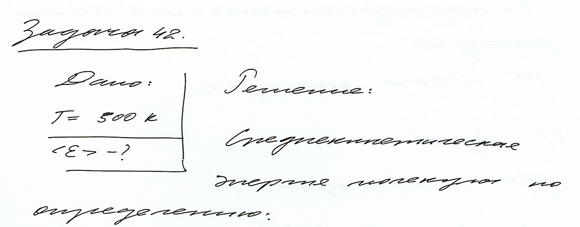 Задача 42.
Дано:
T = 500 К
<ε> - ?
Решение:
Среднекинетическая
энергия молекулы по
определению: